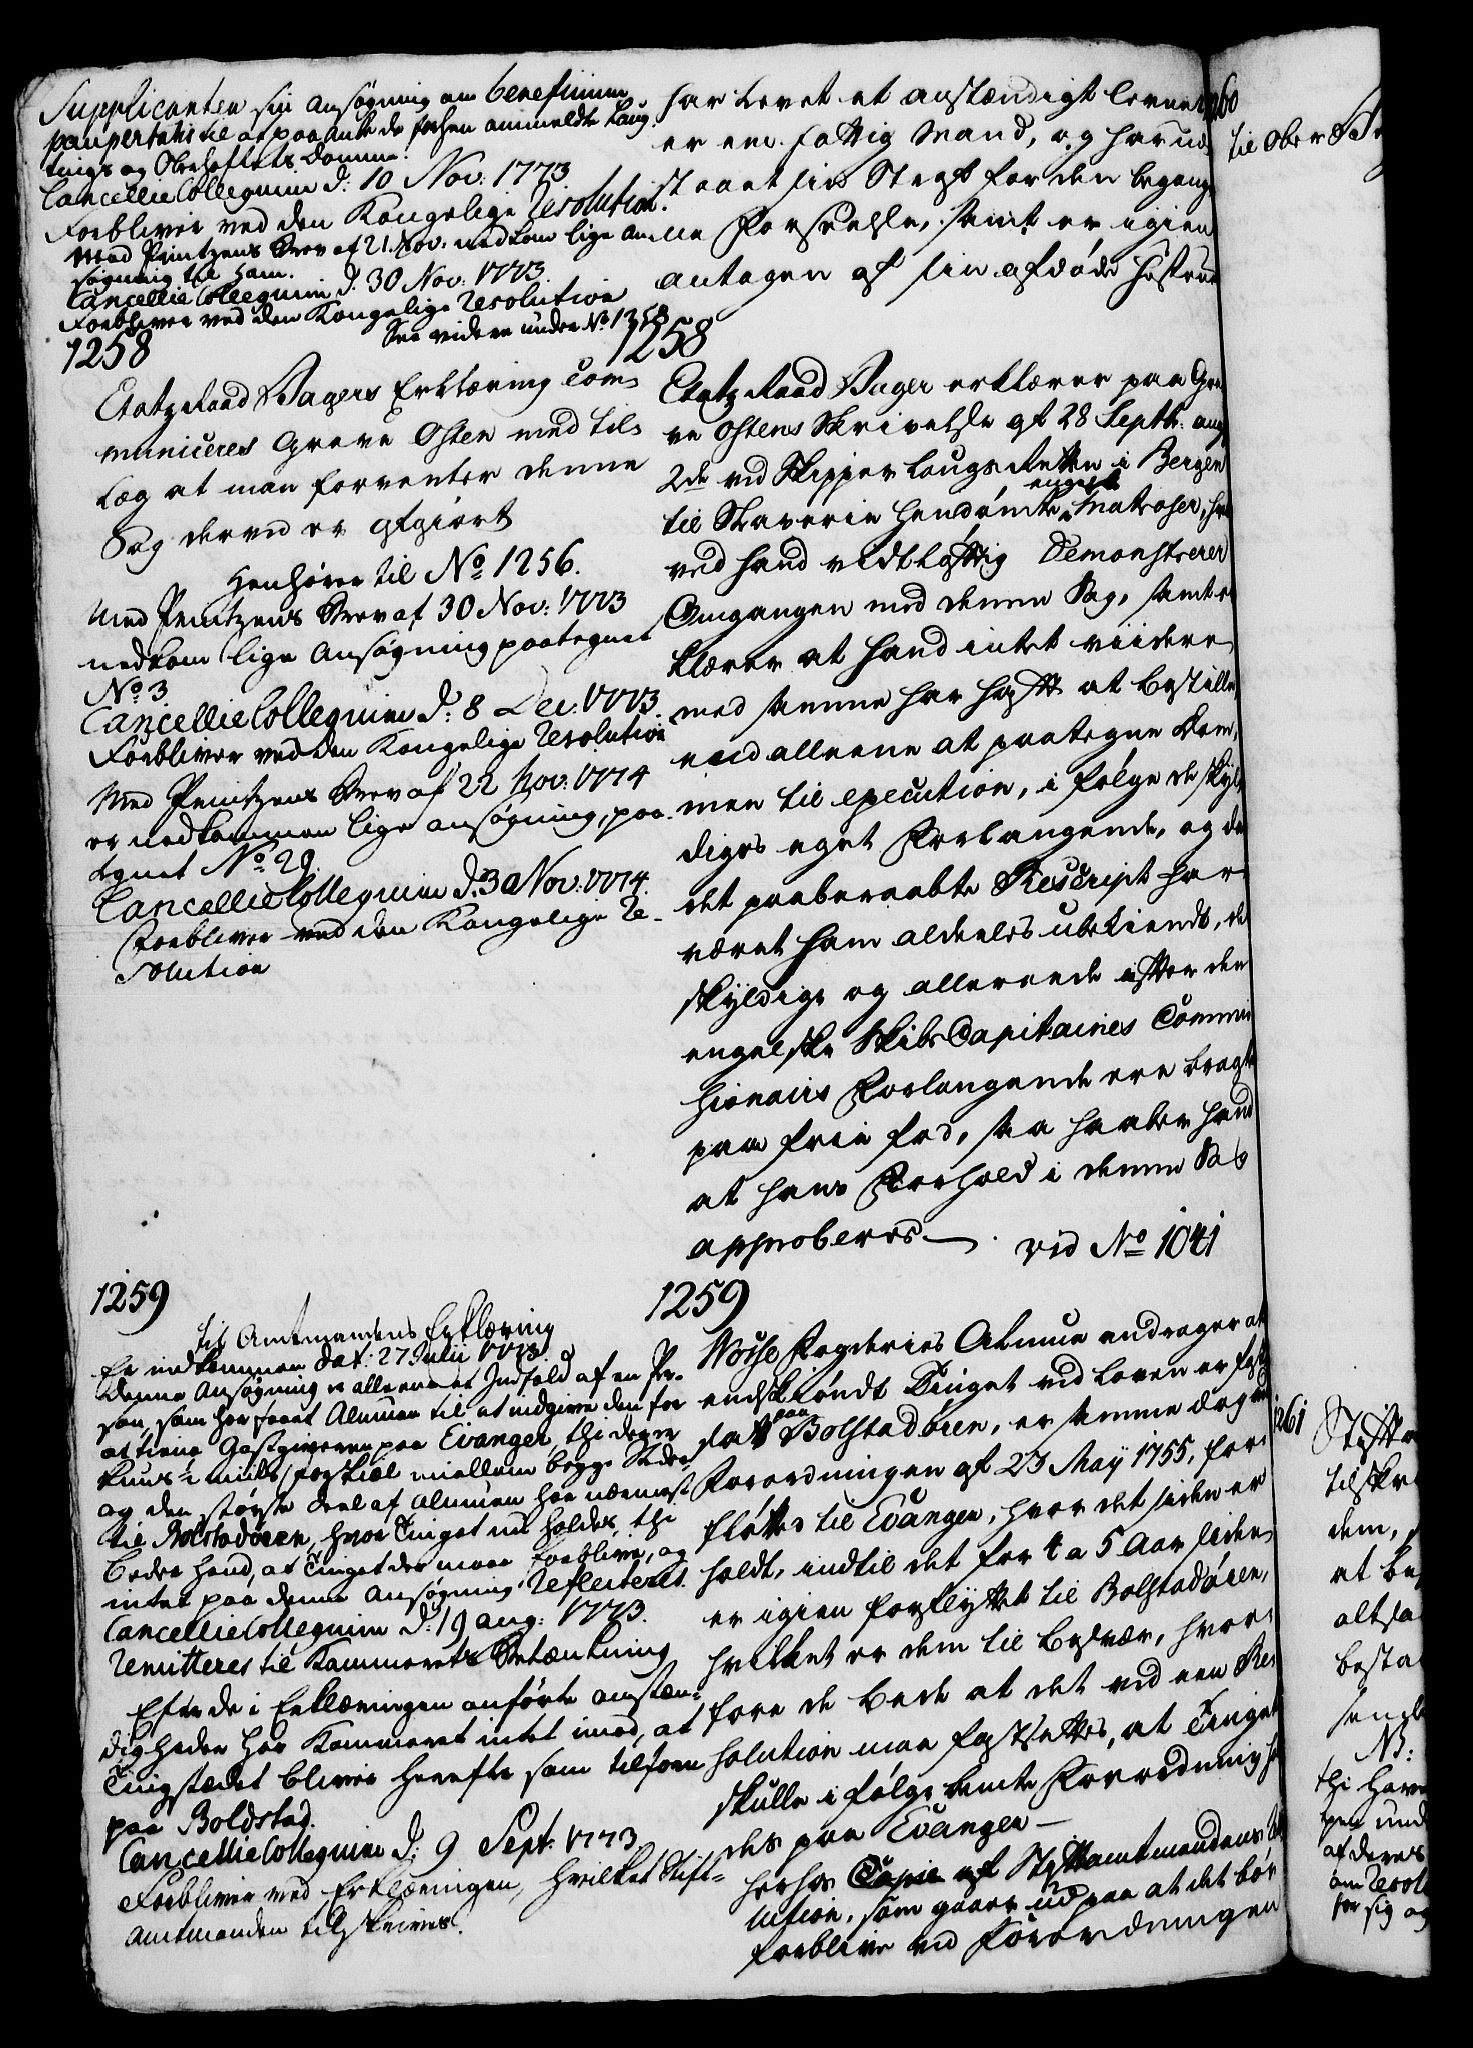 Supplicanten sin ansøgning om beneficium
paupertatis til at paaanke de forhen anmeldte Laug-
tings og Oberhofrets Domme.
Cancellie Collegium d: 10 Nov: 1773.
Forbliver ved den Kongelige Resolution.
Med Printzens Brev af 21 Nov: nedkom lige an-
søgning til ham.
Cancellie Collegium d. 30 Nov: 1773.
Forbliver ved den Kongelige Resolution
See videre under No 1258
1258
Etatz Raad Bagers Erklæring com-
municeres Greve Osten med til-
læg at man forventer denne
Sag derved er afgiort
Henhører til No 1256.
Med Printzens Brev af 30 Nov: 1773
nedkom lige Ansøgning paategnet
No 3
Cancellie Collegium d: 8 Dec: 1773.
Forbliver ved den Kongelige Resolution
Med Printzens Brev af 22 Nov: 1774
er nedkommen lige ansøgning, paa-
tegnet No 29.
Cancellie Collegium d. 30 Nov: 1774.
Forbliver ved den Kongelige Re-
solution
1259
til Amtmandens Erklæring
Er indkommen dat: 27 Julii 1773
denne Ansøgning er alleene et Indfald af en Per-
son, som har faaet Almuen til at indgive den for
at tiene Gastgiveren paa Evanger, thi der er
kuns miils forskiel mellem begge Steder
og den største deel af Almuen har nærmest
til Bolstadøren, hvor Tinget nu holdes, thi
beder hand, at Tinget der maae forblive, og
intet paa denne Ansøgning reflecteres.
Cancellie Collegium d: 19 aug: 1773.
Remitteres til Kammerets Betænkning
Efter de i Erklæringen anførte omstæn-
digheder har Kammeret intet imod, at
Tingstædet bliver herefter som tilforn
paa Boldstad.
Cancellie Collegium d: 9 Sept: 1773
Forbliver ved Erklæringen, hvilket Stift-
amtmanden tilskrives.
har levet et anstændigt levnet
er een fattig Mand, og har ud-
staaet sin Straf for den begang-
ne Forseelse, samt er igien
antagen af sin afdøde Hustrue
1258
Etatz Raad Bager erklærer paa Gre-
ve Ostens Skrivelse af 28 Septbr: ang
2de ved Skipper Laugs Retten i Bergen
til Slaverie hendømte engelske Matroser, hvor-
ved hand vidtløftig demonstrerer
Omgangen med denne Sag, samt er-
klærer at hand intet viidere
med samme har haft at bestille,
end alleene at paategne Dom-
men til execution, i følge de skyl-
diges eget Forlangende, og da
det paaberaabte Rescript har
været ham aldeeles ubekiendt, de
skyldige og allereede efter den
engelske Skibs Capitaines Commis-
sionairs Forlangende ere bragt
paa frie Fod, saa haaber hand
at hans Forhold i denne Sag
approberes. vid No 1041
1259
Wosse Fogderies Almue andrager at
endskiøndt Tinget ved loven er fast-
sat paa Bolstadøren, er samme dog ved
Forordningen af 23 May 1755, for-
fløttet til Evanger, hvor det siden er
holdt, indtil det for 4 a 5 Aar siden
er igien forflyttet til Bolstadøren,
hvilket er dem til besvær, hvor-
fore de bede at det ved een Re-
solution maa fastsættes, at Tinget
skulle i følge bemte Forordning hol-
des paa Evanger —
herhos Copie af Stiftamtmandens
lution, som gaaer ud paa at det bør
forblive ved Forordningen
1260
til Ober
1261
Stift
tilskr
dem,
at be
altsa
besta
send
NB:
thi have
pen und
af deres
om Resol
for sig og